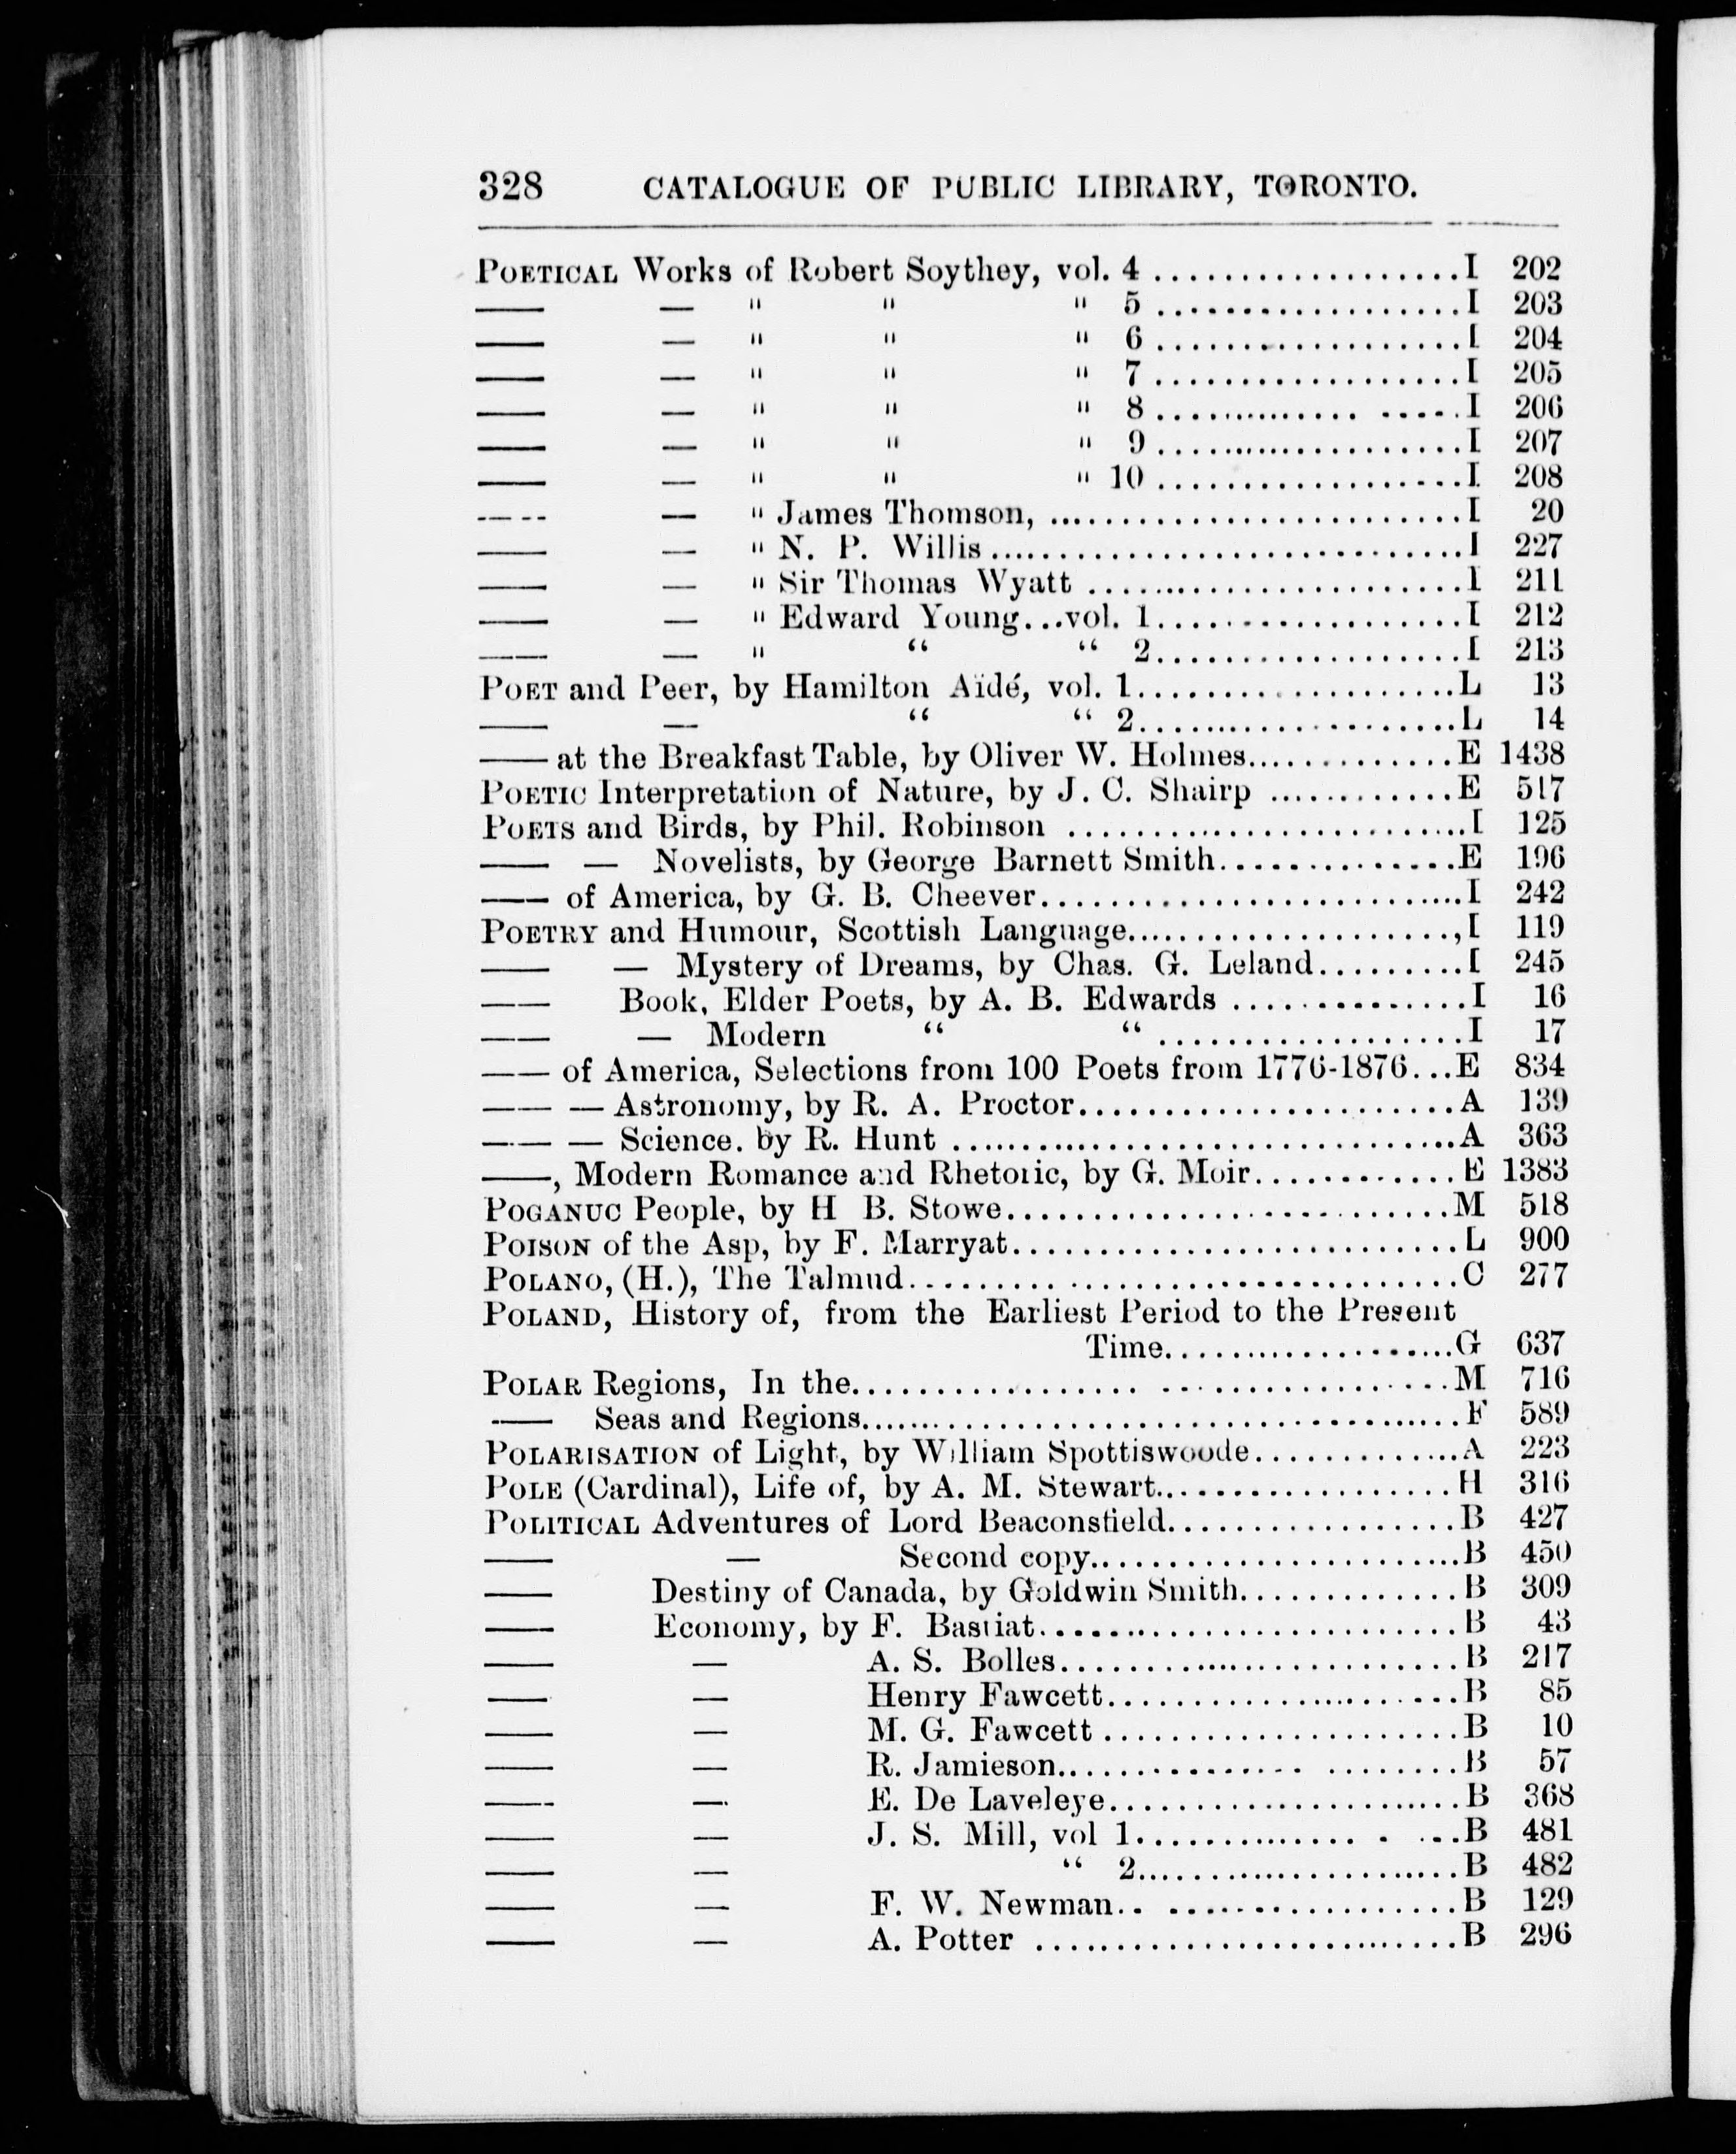 328 CATALOGUE OF PUBLIC LIBRARY, TORONTO.
POETICAL Works of Robert Soythey, vol. 4 ...................I 202
—— — " " " 5 ...................I 203
—— — " " " 6 ...................I 204
—— — " " " 7 ...................I 205
—— — " " " 8 ...................I 206
—— — " " " 9 ...................I 207
—— — " " " 10 ...................I 208
—— — " James Thomson, ...................I 20
—— — " N. P. Willis...................I 227
—— — " Sir Thomas Wyatt ...................I 211
—— — " Edward Young...vol. 1...................I 212
—— — " “ “ 2...................I 213
POET and Peer, by Hamilton Aïdé, vol. 1...................L 13
—— — “ “ 2...................L 14
—— at the Breakfast Table, by Oliver W. Holmes.............E 1438
POETIC Interpretation of Nature, by J. C. Shairp ............E 517
POETS and Birds, by Phil. Robinson ...................I 125
—— — Novelists, by George Barnett Smith..............E 196
—— of America, by G. B. Cheever...................I 242
POETRY and Humour, Scottish Language...................,I 119
—— — Mystery of Dreams, by Chas. G. Leland.........I 245
—— Book, Elder Poets, by A. B. Edwards ..............I 16
—— — Modern “ “ ..................I 17
—— of America, Selections from 100 Poets from 1776-1876...E 834
—— — Astronomy, by R. A. Proctor...................A 139
—— — Science. by R. Hunt ...................A 363
——, Modern Romance and Rhetoric, by G. Moir............E 1383
POGANUC People, by H B. Stowe...................M 518
POISON of the Asp, by F. Marryat...................L 900
POLANO, (H.), The Talmud...................C 277
POLAND, History of, from the Earliest Period to the Present
Time...................G 637
POLAR Regions, In the...................M 716
—— Seas and Regions...................F 589
POLARISATION of Light, by William Spottiswoode.............A 223
POLE (Cardinal), Life of, by A. M. Stewart..................H 316
POLITICAL Adventures of Lord Beaconsfield.................B 427
—— — Second copy...................B 450
—— Destiny of Canada, by Goldwin Smith.............B 309
—— Economy, by F. Bastiat...................B 43
—— — A. S. Bolles...................B 217
—— — Henry Fawcett...................B 85
—— — M. G. Fawcett ...................B 10
—— — R. Jamieson...................B 57
—— — E. De Laveleye...................B 368
—— — J. S. Mill, vol 1...................B 481
—— — “ 2...................B 482
—— — F. W. Newman...................B 129
—— — A. Potter ...................B 296